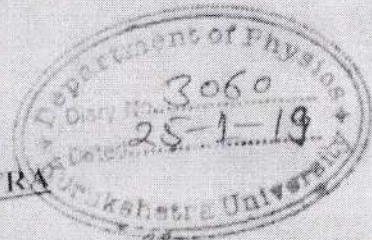 Department of Physics
Diary No. 3060
Dated 25-1-19
Kurukshetra University
RA